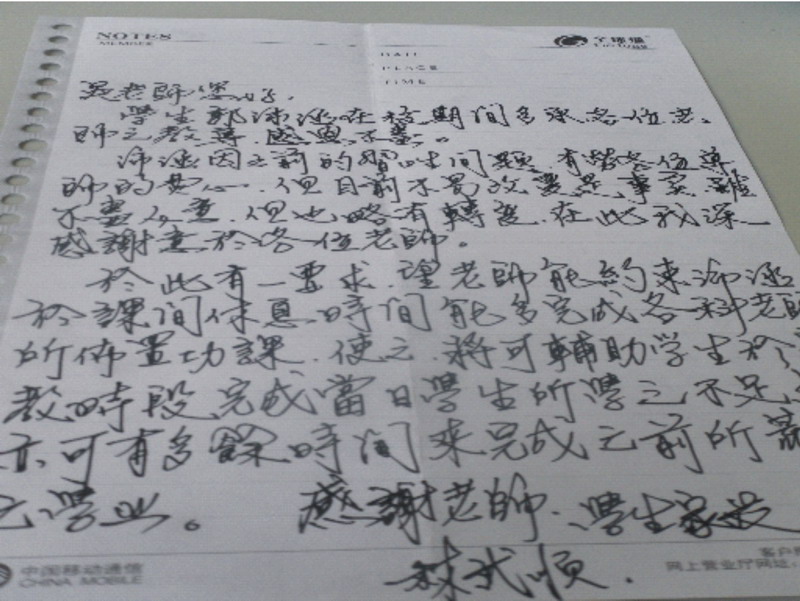 NOTES
MEMBER
全球通
GoTone
DATE
PLACE
TIME
老師您好,
學生郭沛涵在校期间多承各位老
師之教導,感恩不盡。
沛涵因之前的習性问題,有勞各位導
師的費心,但目前不易改變是事实,雖
不盡人意,但也略有轉變,在此我深
感謝意於各位老師。
於此有一要求,望老師能約束沛涵
於課間休息時间能多完成各科老師
所佈置功課,使之將可輔助学生於
教時段完成當日學生所學之不足
亦可有多餘時间來完成之前所
之學业。 感謝老師. 學生家长
林武順.
中国移动通信
CHINA MOBILE
客户
网上营业厅网址: